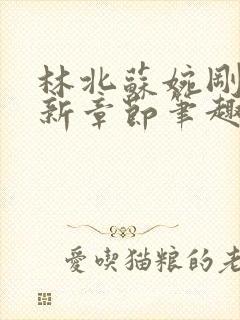 林北蘇婉剛
新章節筆趣
愛喫猫粮的老